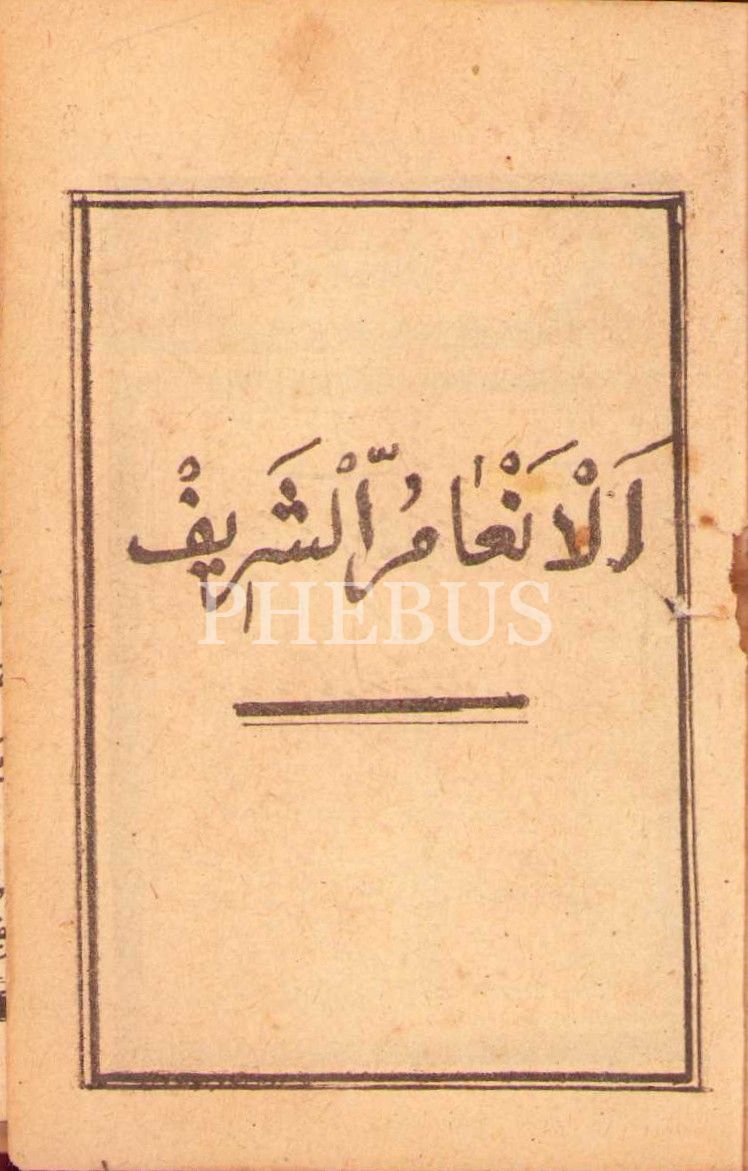 اَلْاَنْعَامُ الّْشَرِيفْ
PHEBUS